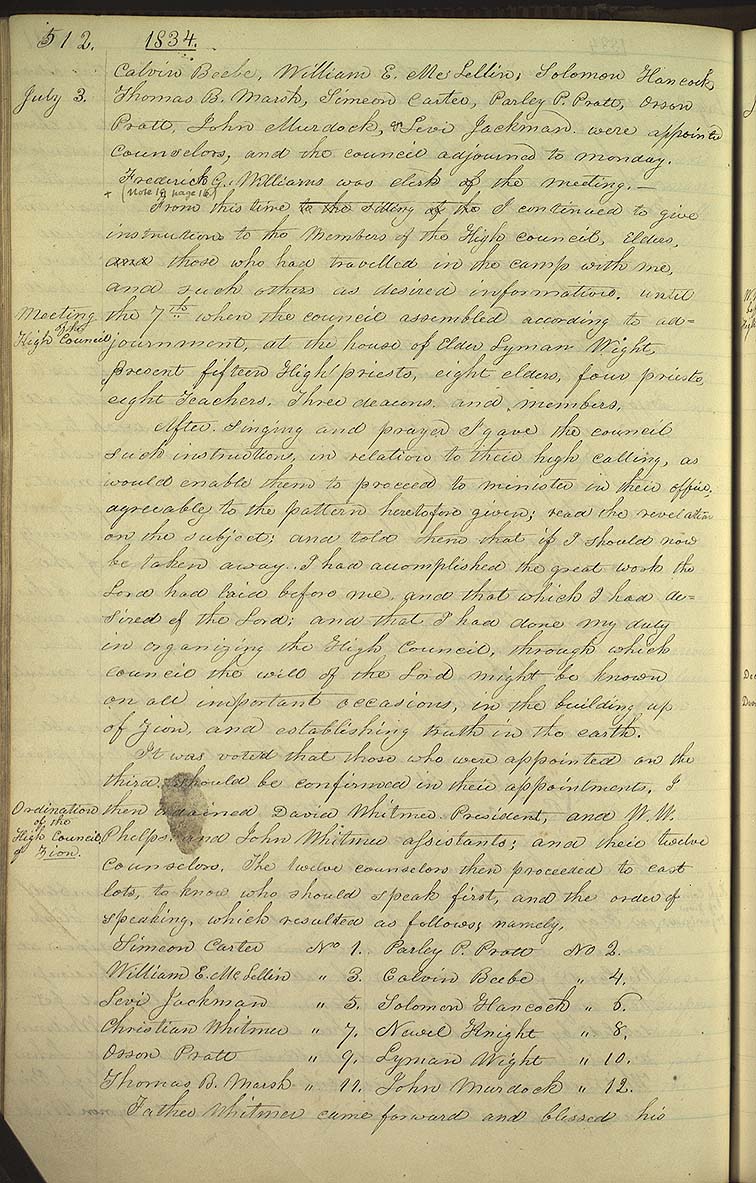 512.
1834.
July 3.
Calvin Beebe, William E. McLellin, Solomon Hancock,
Thomas B. Marsh, Simeon Carter, Parley P. Pratt, Orson
Pratt, John Murdock, & Levi Jackman were appointed
Counselors, and the council adjourned to monday.
Frederick G. Williams was clerk of the meeting.—
+ (Note 19 page 16)
From this time to the sitting of the I continued to give
instructions to the Members of the High council, Elders,
those who had travelled in the camp with me,
and such others as desired information, until
Meeting of the High Council
the 7th when the council assembled according to ad=
journment, at the house of Elder Lyman Wight,
Present fifteen High priests, eight elders, four priests,
eight Teachers, Three deacons and members.
After singing and prayer I gave the council
such instructions, in relation to their high calling, as
would enable them to proceed to minister in their office,
agreeable to the pattern heretofore given; read the revelation
on the subject; and told them that if I should now
be taken away I had accomplished the great work the
Lord had laid before me, and that which I had de=
sired of the Lord; and that I had done my duty
in organizing the High Council, through which
council the will of the Lord might be known
on all important occasions, in the building up
of Zion, and establishing truth in the earth.
It was voted that those who were appointed on the
third, should be confirmed in their appointments. I
Ordination of the High Council of Zion.
then ordained David Whitmer President, and W. W.
Phelps, and John Whitmer assistants; and their twelve
counselors. The twelve counselors then proceeded to cast
lots, to know who should speak first, and the order of
speaking, which resulted as follows; namely,
Simeon Carter No 1. Parley P. Pratt No 2.
William E. McLellin " 3. Calvin Beebe " 4.
Levi Jackman " 5. Solomon Hancock " 6.
Christian Whitmer " 7. Newel Knight " 8.
Orson Pratt " 9. Lyman Wight " 10.
Thomas B. Marsh " 11. John Murdock " 12.
Father Whitmer came forward and blessed his